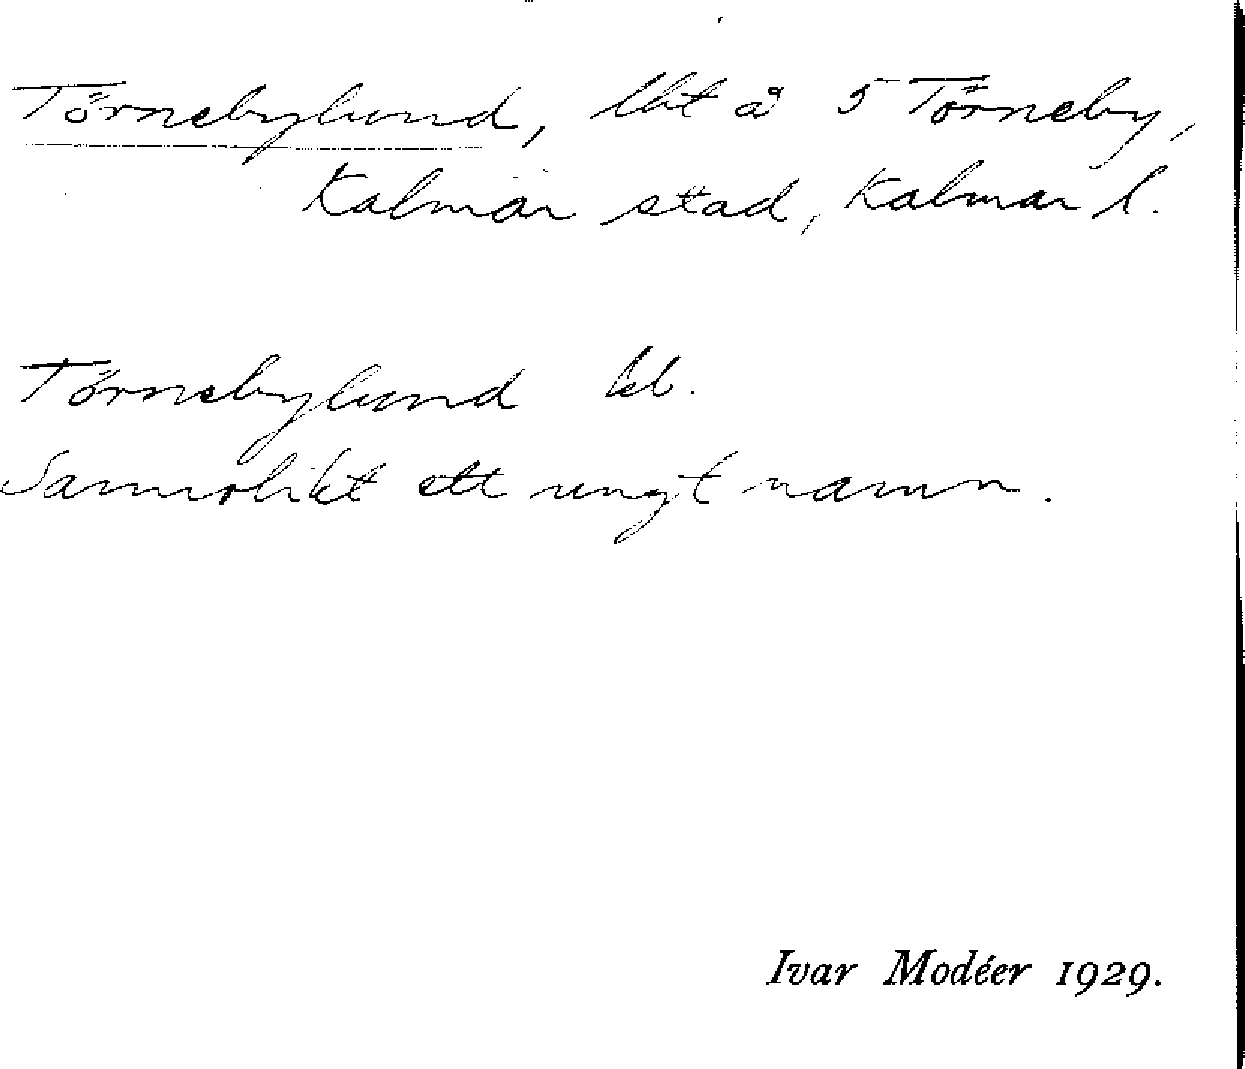 Törnebylund, lht å 5 Törneby,
Kalmar stad, Kalmar l.
Törnebylund kb.
Sannolikt ett ungt namn.
Ivar Modéer 1929.